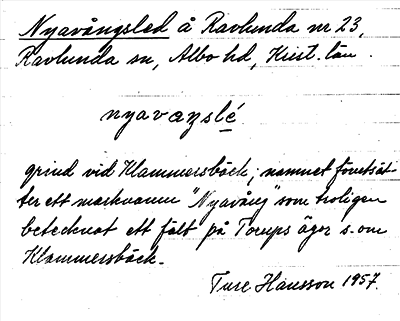 Nyavångsled å Ravlunda nr 23,
Ravlunda sn, Albo hd, Krist. län.
nyavaŋslé
grind vid Klammersbäck; namnet förutsät-
ter ett marknamn "Nyavång" som troligen
betecknat ett fält på Torups ägor s. om
Klammersbäck.
Ture Hansson 1957.